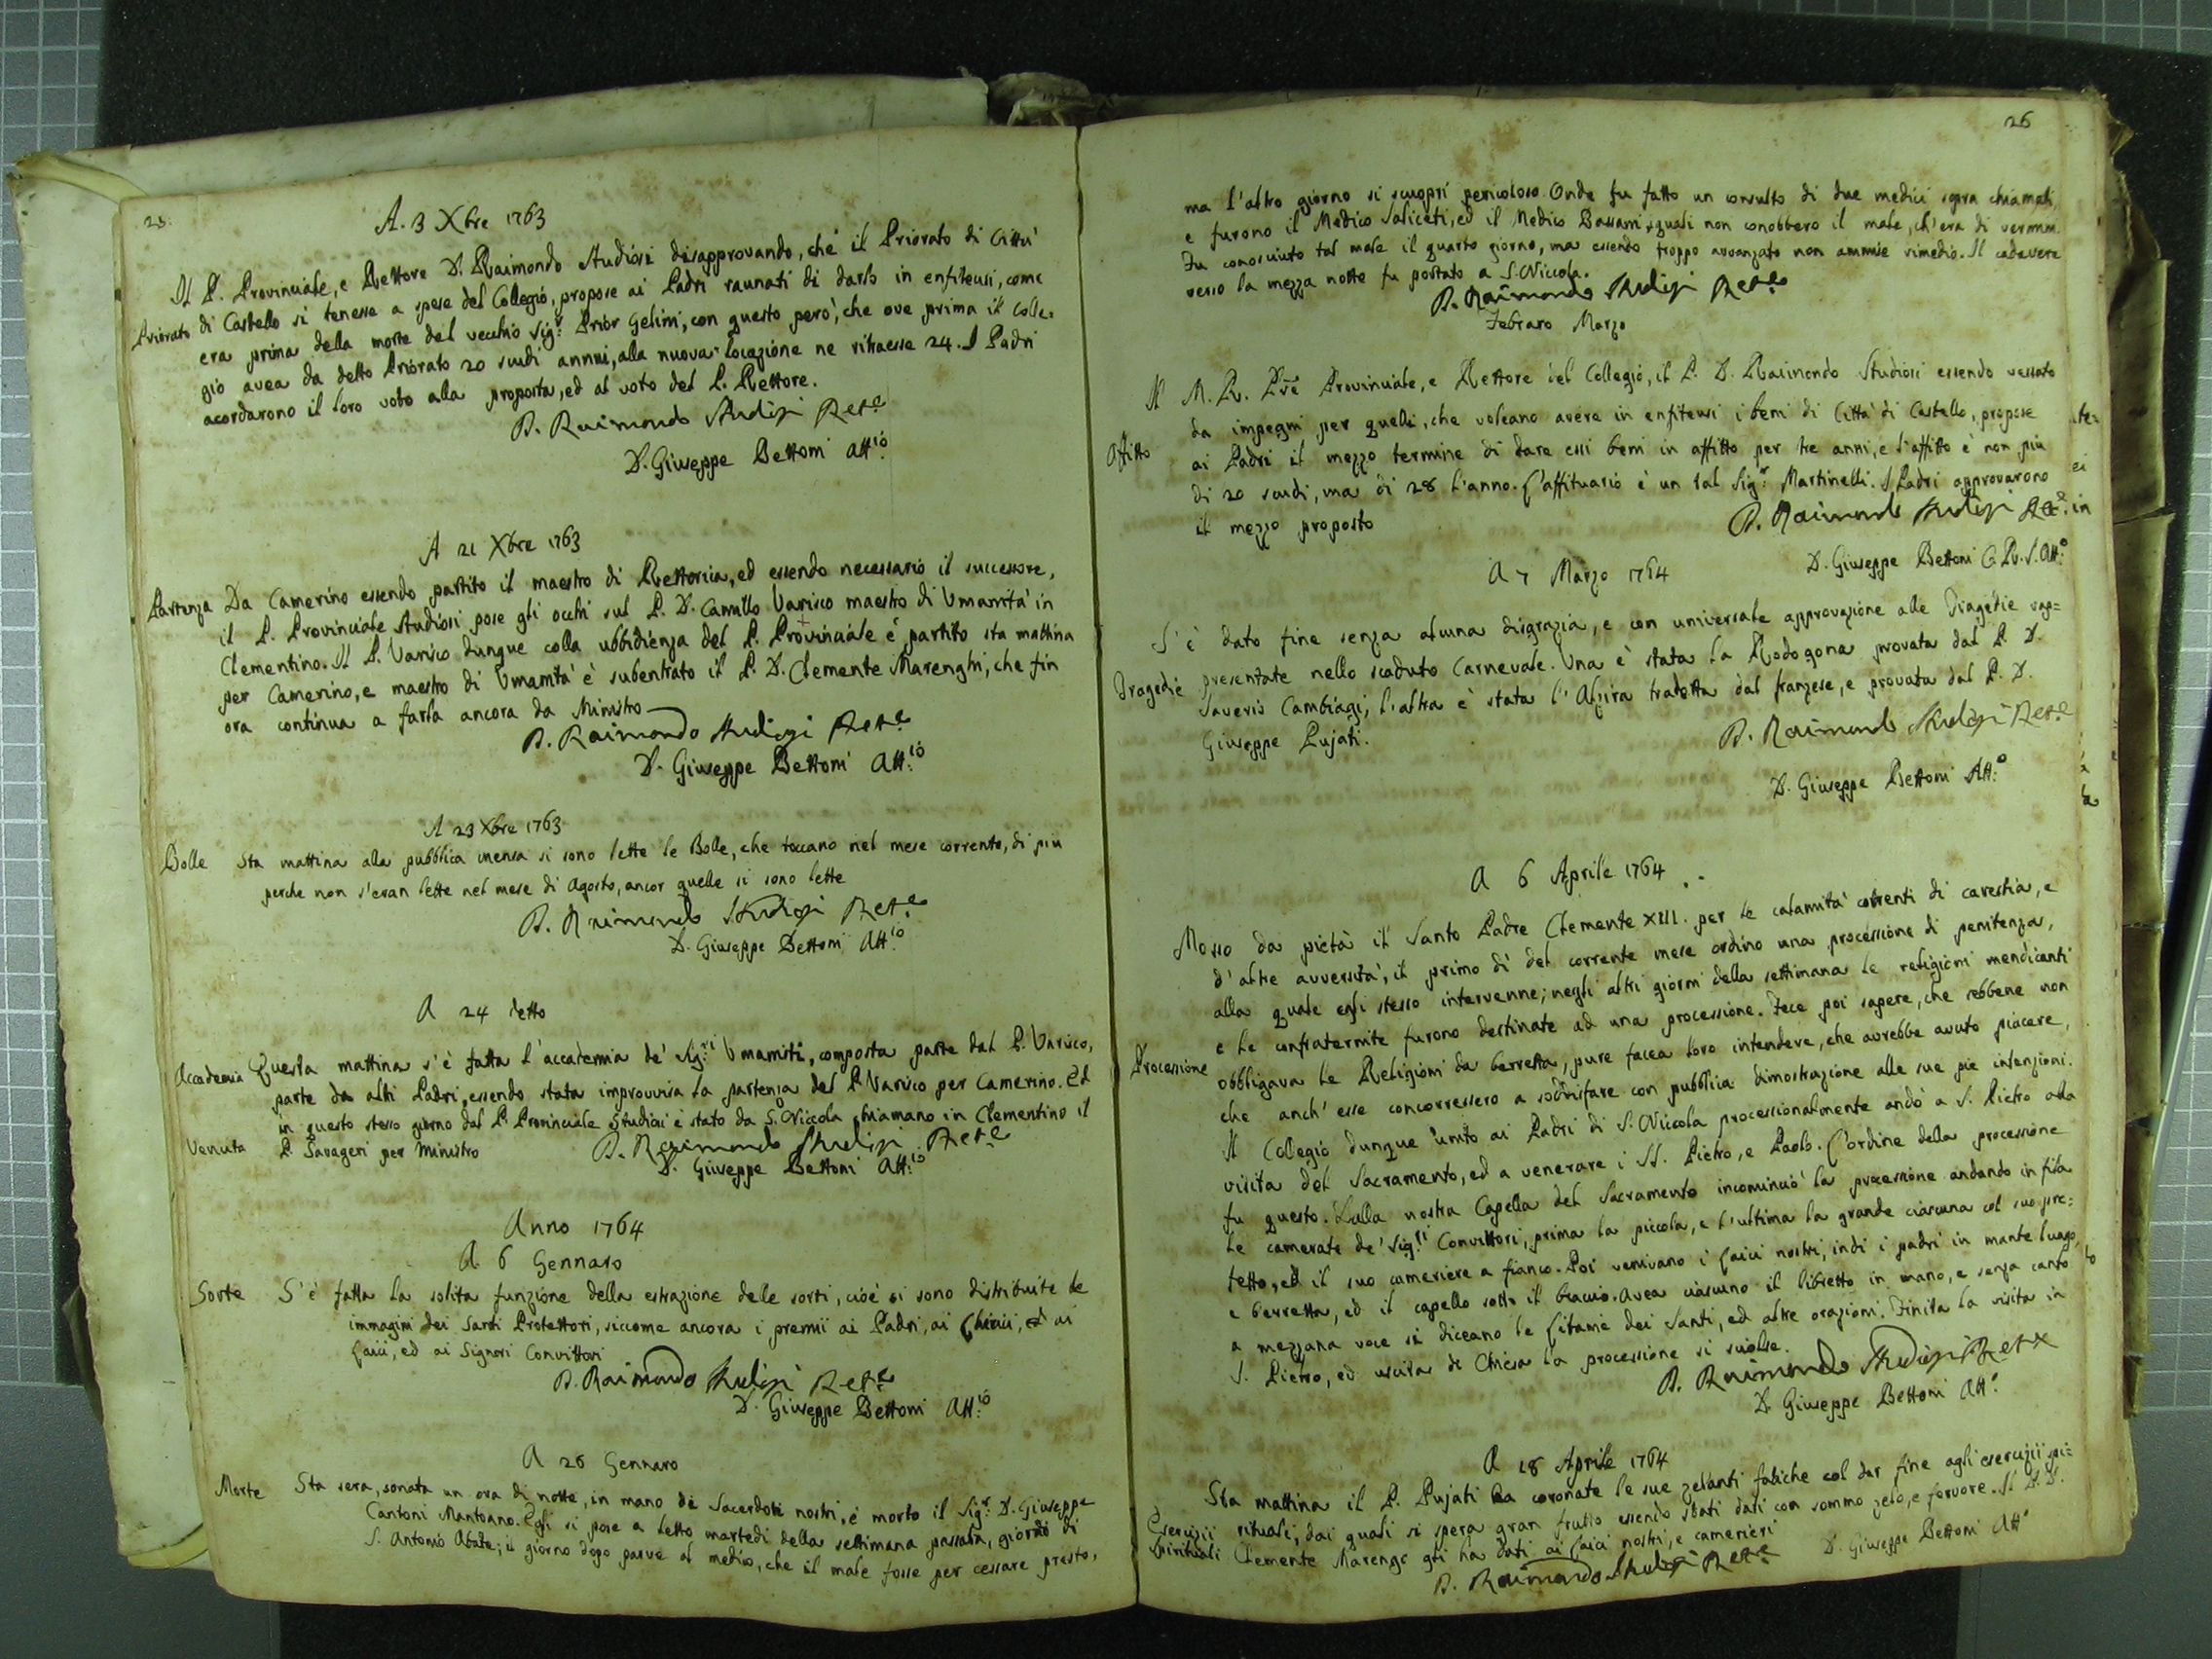 23.
A. 3 Xbre 1763
Il P. Provinciale, e Rettore D. Raimondo Studiosi disapprovando, che il Priorato di Città
Priorato di Castello si tenesse a spese del Collegio, propose ai Padri raunati di darlo in enfiteusi, come
era prima della morte del vecchio Sig.r Prior Gelini, con questo però, che ove prima il Colle=
gio avea da detto Priorato 20 scudi annui, alla nuova locazione ne ritraesse 24. I Padri
acordarono il loro voto alla proposta, ed al voto del P. Rettore.
D. Raimondo Studiosi Rett.e
D. Giuseppe Bettoni Att.io
A 21 Xbre 1763
Partenza Da Camerino essendo partito il maestro di Rettorica, ed essendo necessario il successore,
il P. Provinciale Studiosi pose gli occhi sul P. D. Camillo Varisco maestro di Umanità in
Clementino. Il P. Varisco dunque colla ubbidienza del P. Provinciale è partito sta mattina
per Camerino, e maestro di Umanità è subentrato il P. D. Clemente Marenghi, che fin
ora continua a farla ancora da Ministro
D. Raimondo Studiosi Rett.e
D. Giuseppe Bettoni Att.io
A 23 Xbre 1763
Bolle Sta mattina alla pubblica mensa si sono lette le Bolle, che toccano nel mese corrente, di più
perche non s'eran lette nel mese di Agosto, ancor quelle si sono lette
D. Raimondo Studiosi Rett.e
D. Giuseppe Bettoni Att.io
A 24 detto
Accademia Questa mattina s'è fatta l'accademia de' Sig.ri Umanisti, composta parte dal P. Varisco,
parte da altri Padri, essendo stata improvvisa la partenza del P. Varisco per Camerino. Ed
in questo stesso giorno dal P. Provinciale Studiosi è stato da S. Niccola chiamano in Clementino il
Venuta P. Savageri per Ministro
D. Raimondo Studiosi Rett.e
D. Giuseppe Bettoni Att.io
Anno 1764
A 6 Gennaro
Sorte S'è fatta la solita funzione della estrazione delle sorti, cioè si sono distribuite le
immagini dei Santi Protettori, siccome ancora i premii ai Padri, ai Chierici, ed ai
Laici, ed ai Signori Convittori
D. Raimondo Studiosi Rett.e
D. Giuseppe Bettoni Att.io
A 26 Gennaro
Morte Sta sera, sonata un ora di notte, in mano de Sacerdoti nostri, è morto il Sig.r D. Giuseppe
Cantoni Mantoano. Egli si pose a letto martedi della settimana passata, giorno di
S. Antonio Abate; il giorno dopo parve al medico, che il male fosse per cessare presto,
26
ma l'altro giorno si scuoprì pericoloso. Onde fu fatto un consulto di due medici sopra chiamati,
e furono il Medico Saliceti, ed il Medico Bassani, quali non conobbero il male, ch'era di vermini.
Fu conosciuto tal male il quarto giorno, ma essendo troppo avvanzato non ammise rimedio. Il cadavere
verso la mezza notte fu portato a S. Niccola.
D. Raimondo Studiosi Rett.e
Febraro Marzo
Il M. R. Pre Provinciale, e Rettore del Collegio, il P. D. Raimondo Studiosi essendo vessato
da impegni per quelli, che voleano avere in enfiteusi i beni di Città di Castello, propose
Affitto ai Padri il mezzo termine di dare essi beni in affitto per tre anni, e l'affitto è non più
di 20 scudi, ma di 28 l'anno. L'affituario è un tal Sig.r Martinelli. I Padri approvarono
il mezzo proposto
D. Raimondo Studiosi Rett.e
D. Giuseppe Bettoni C. R. S. Att.o
A 7 Marzo 1764
S'è dato fine senza alcuna disgrazia, e con universale approvazione alle Tragedie rap=
Tragedie presentate nello scaduto Carnevale. Una è stata la Rodogona provata dal P. D.
Saverio Cambiagi, l'altra è stata l'Alzira tradotta dal franzese, e provata dal P. D.
Giuseppe Pujati.
D. Raimondo Studiosi Rett.e
D. Giuseppe Bettoni Att.o
A 6 Aprile 1764
Mosso da pietà il Santo Padre Clemente XIII. per le calamità correnti di carestia, e
d'altre avversità, il primo dì del corrente mese ordino una processione di penitenza,
alla quale egli stesso intervenne; negli altri giorni della settimana le religioni mendicanti
e le confraternite furono destinate ad una processione. Fece poi sapere, che sebbene non
Processione obbligava le Religioni da berretta, pure facea loro intendere, che avrebbe avuto piacere,
che anch'esse concorressero a sodisfare con pubblica dimostrazione alle sue pie intenzioni.
Il Collegio dunque unito ai Padri di S. Niccola processionalmente andò a S. Pietro alla
visita del Sacramento, ed a venerare i SS. Pietro, e Paolo. L'ordine della processione
fu questo. Dalla nostra Capella del Sacramento incominciò la processione andando in fila
le camerate de' Sig.ri Convittori, prima la piccola, e l'ultima la grande ciascuna col suo pre=
fetto, ed il suo cameriere a fianco. Poi venivano i Laici nostri, indi i padri in mante lungo,
e berretta, ed il capello sotto il braccio. Avea ciascuno il libretto in mano, e senza canto
a mezzana voce si diceano le Litanie dei Santi, ed altre orazioni. Finita la visita in
S. Pietro, ed uscita di Chiesa la processione si sciolse.
D. Raimondo Studiosi Rett.e
D. Giuseppe Bettoni Att.o
A 18 Aprile 1764
Sta mattina il P. Pujati ha coronate le sue zelanti fatiche col dar fine agli esercizii spi=
Esercizii rituali, dai quali si spera gran frutto essendo stati dati con sommo zelo, e fervore. Il P. D.
Spirituali Clemente Marenge gli ha dati ai Laici nostri, e camerieri
D. Raimondo Studiosi Rett.e
D. Giuseppe Bettoni Att.o